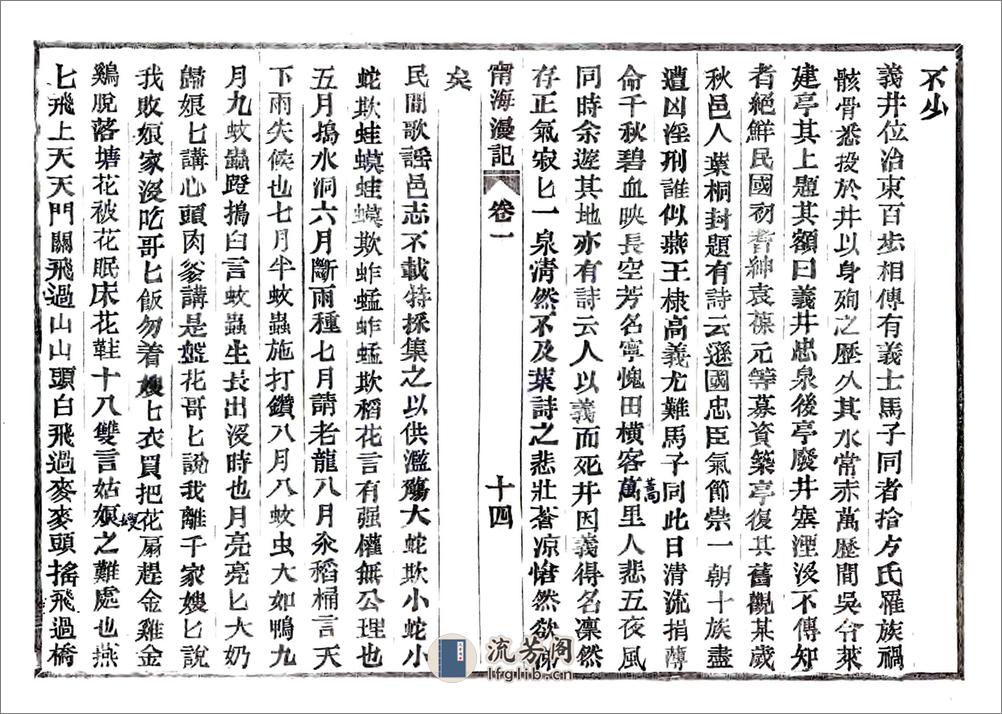 不少
義井位治東百步相傳有義士馬子同者拾方氏羅族禍
骸骨悉投於井以身殉之歷久其水常赤萬歷間吳令萊
建亭其上題其額曰義井忠泉後亭廢井塞湮没不傳知
者絕鮮民國初耆紳袁葆元等募資築亭復其舊觀某歲
秋邑人葉桐封題有詩云遜國忠臣氣節崇一朝十族盡
遭凶淫刑誰似燕王棣高義尤難馬子同此日清流捐薄
命千秋碧血映長空芳名寧愧田橫客萬里人悲五夜風
蒿
同時余遊其地亦有詩云人以義而死井因義得名凛然
存正氣寂匕一泉清然不及葉詩之悲壯蒼凉愴然欲涕
甯海漫記 卷一 十四
矣
民間歌謡邑志不載特採集之以供濫觴大蛇欺小蛇小
蛇欺蛙蟆蛙蟆欺蚱蜢蚱蜢欺稻花言有强權無公理也
五月搗水洞六月斷雨種七月請老龍八月氽稻桶言天
下雨失候也七月半蚊蟲施打鑽八月八蚊虫大如鴨九
月九蚊蟲蹬搗臼言蚊蟲生長出没時也月亮亮匕大奶
歸娘匕講心頭肉爹講是盤花哥匕說我離千家嫂匕說
我敗娘家没吃哥匕飯勿着嫂匕衣買把花扇趕金雞金
鷄脫落塘花被花眠床花鞋十八雙言姑娘之難處也燕
嫂
匕飛上天天門關飛過山山頭白飛過麥麥頭搖飛過橋
流芳阁
lfglib.cn